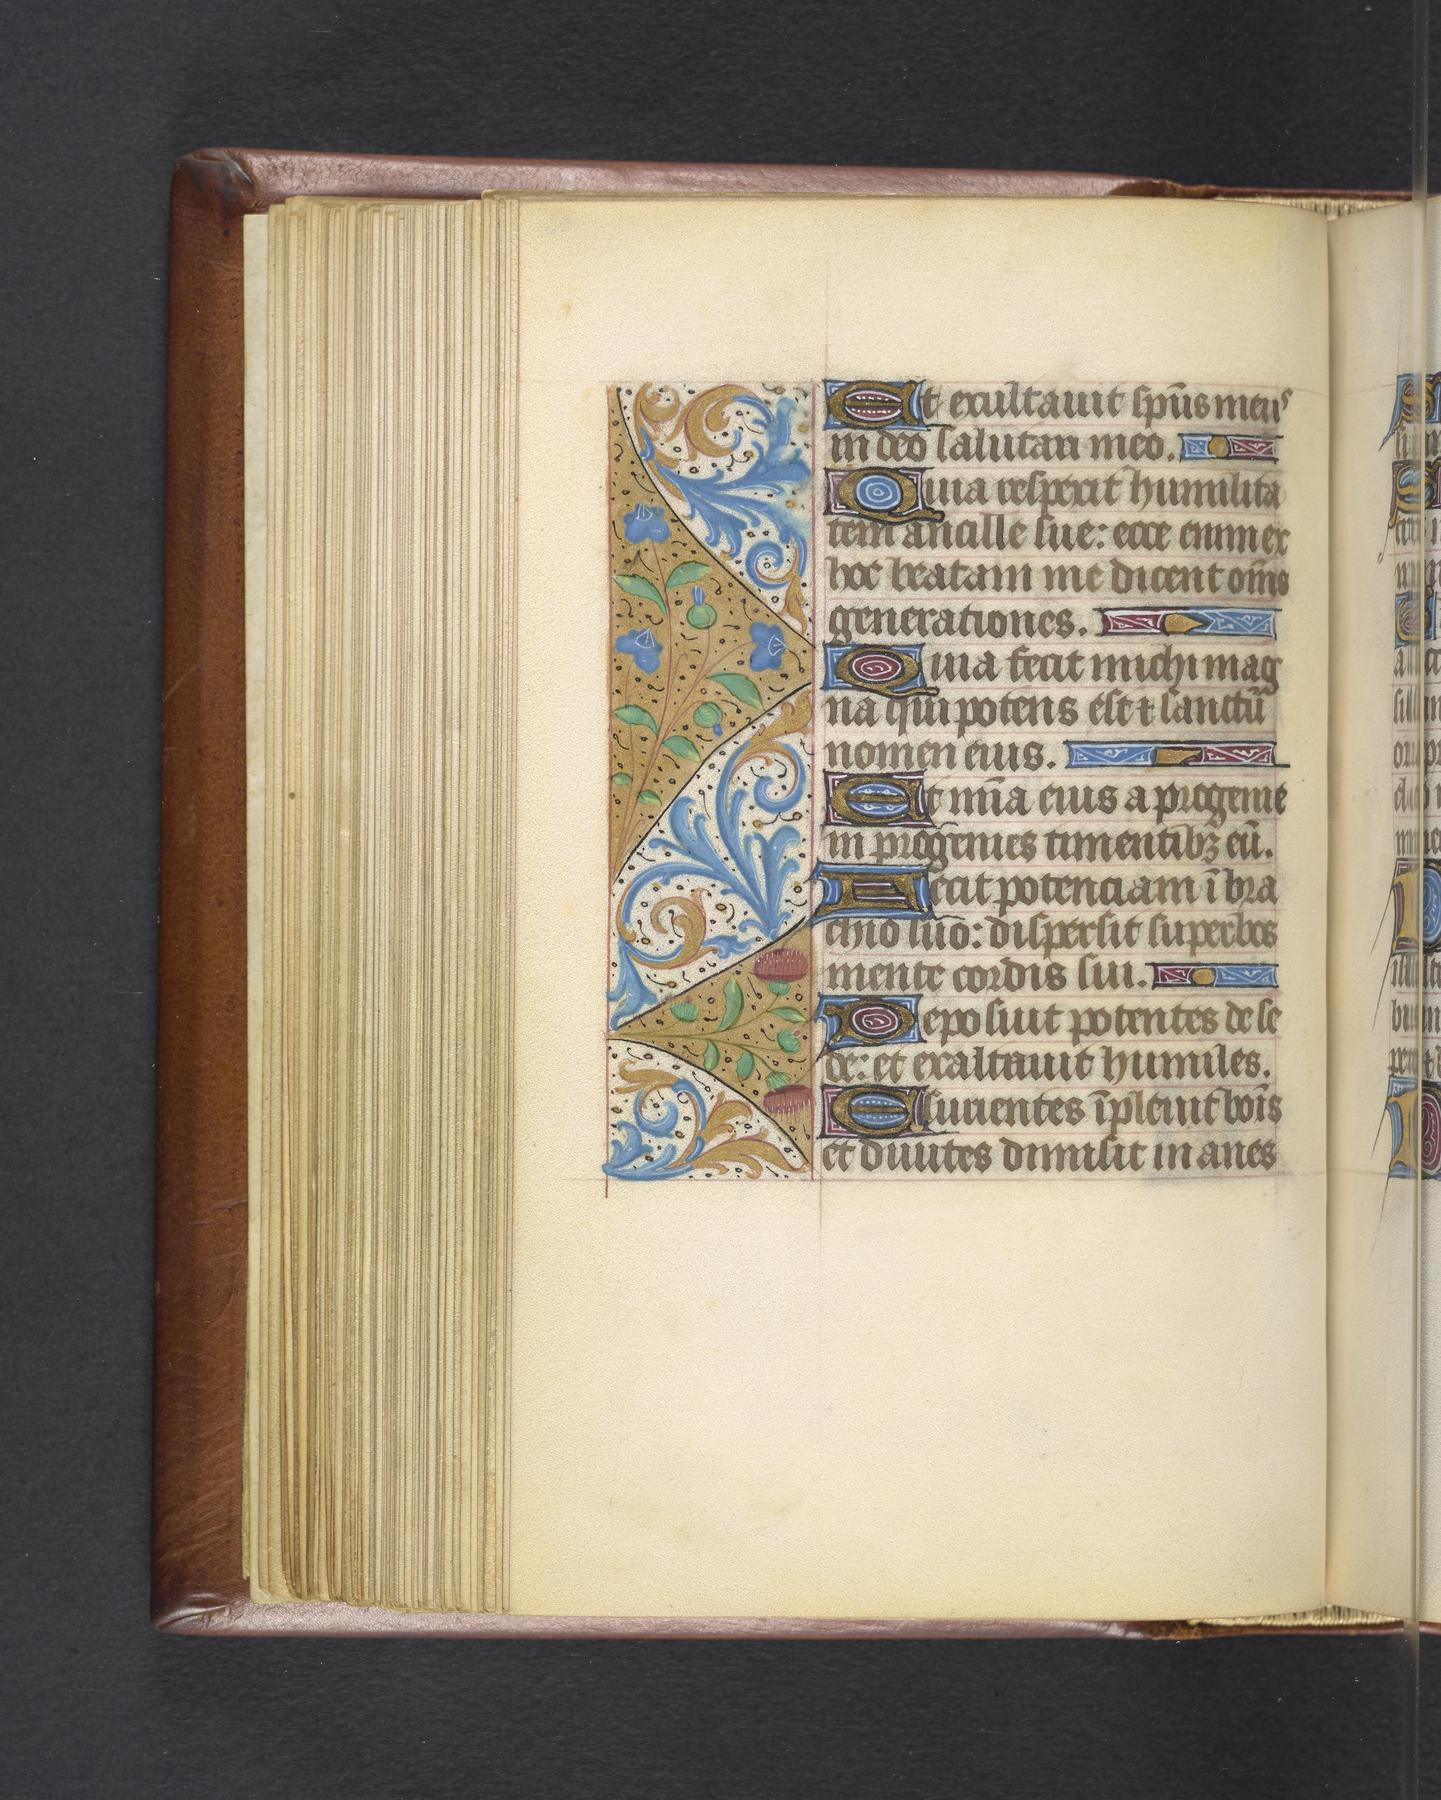 Et exultauit sp̄us meuˢ
in deo salutari meo.
Quia respexit humilita
tem ancille sue: ecce enim ex
hoc beatam me dicent om̄s
generationes.
Quia fecit michi mag
na qui potens est ⁊ sanctū
nomen eius.
Et mīa eius a progenie
in progenies timentibꝫ eū.
Fecit potenciam ī bra
chio suo: dispersit superbos
mente cordis sui.
Deposuit potentes de se
de: et exaltauit humiles.
Esurientes īpleuit bois̄
et diuites dimisit in anes